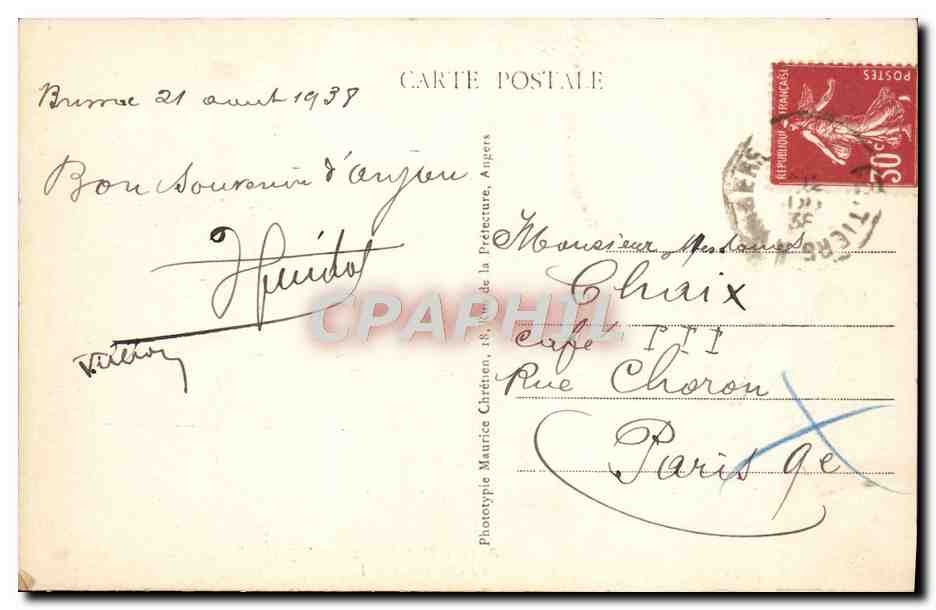 CARTE POSTALE
Brissac 21 aout 1938
Bon Souvenir d'anjou
Phototypie Maurice Chrétien, 18, Rue de la Préfecture, Angers
RÉPUBLIQUE FRANÇAISE
POSTES
30c
Monsieur Mesdames
Chaix
Café PTT
Rue Choron
Paris 9e
CPAPHIL